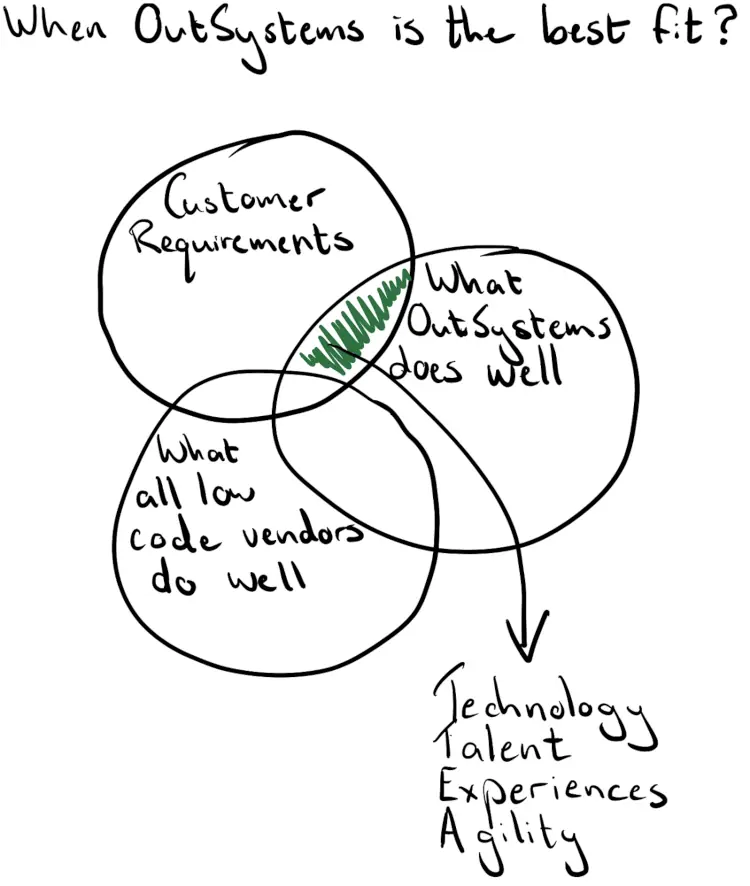 When OutSystems is the best fit?
Customer
Requirements
What
OutSystems
does well
What
all low
code vendors
do well
Technology
Talent
Experiences
Agility